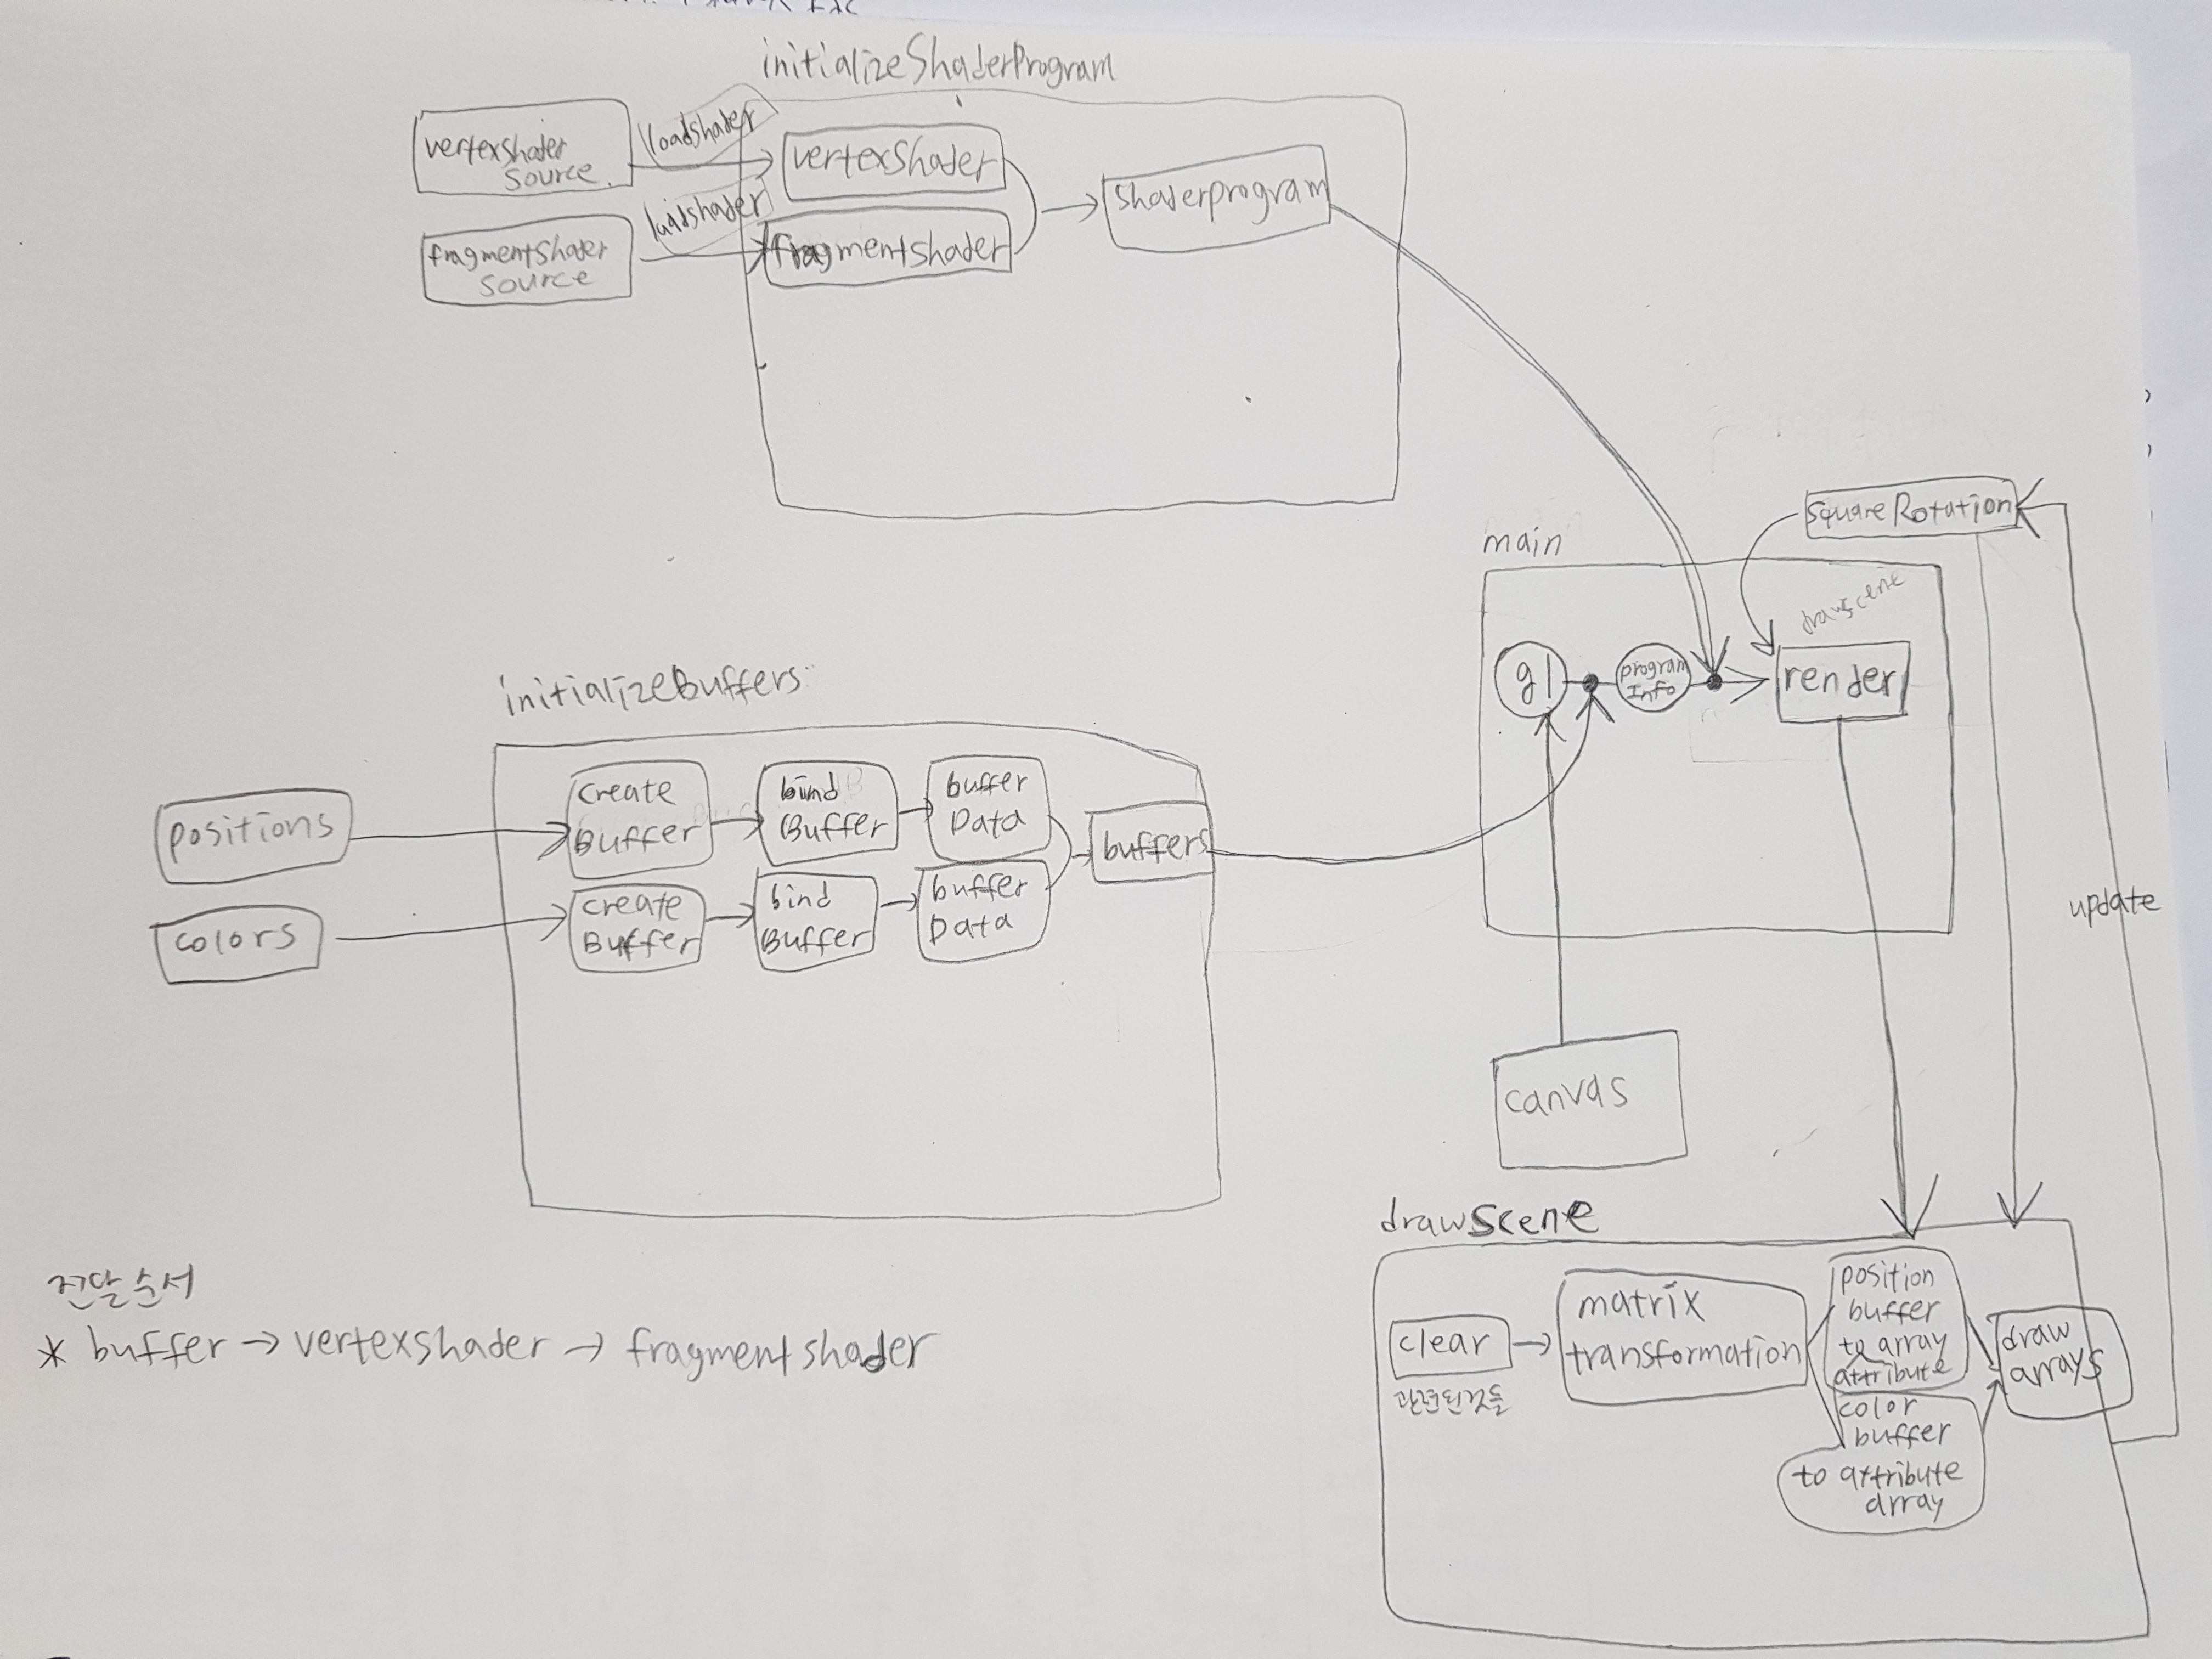 initializeShaderProgram
vertexShader
Source.
loadshader
vertexShader
shaderprogram
fragmentShader
Source
loadshader
fragmentshader
squareRotation
main
drawscene
gl
program
Info
render
initializeBuffers
positions
create
Buffer
bind
Buffer
buffer
Data
buffers
colors
create
Buffer
bind
Buffer
buffer
Data
update
canvas
drawscene
clear
관련된것들
matrix
transformation
position
buffer
to array
attribute
color
buffer
to attribute
array
draw
arrays
전달순서
* buffer → vertexshader → fragmentshader